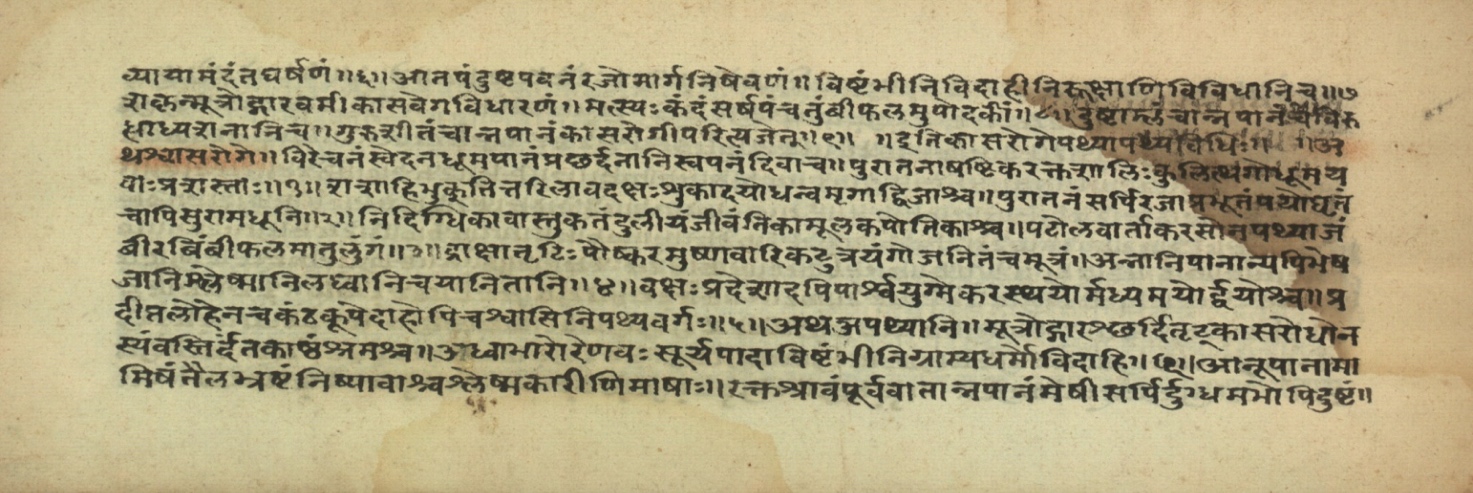 व्यायामंदंतघर्षणं॥६॥आतपंदुष्टपवनंरजोमार्गनिषेवणं॥विष्टंभीनिविदाहीनिरूक्षाणिविविधानिच॥७
शकृन्मूत्रोद्गारवमीकासवेगविधारणं॥मत्स्यःकंदंसर्षपंचतुंबीफलमुपोदकीं॥८॥दुष्टाम्बुचान्नपानंचविरु
द्धाध्यशनानिच॥गुरुशीतंचान्नपानंकासरोगीपरित्यजेत्॥९॥ ॥इतिकासरोगेपथ्यापथ्यविधिः॥ ॥अ
थश्वासरोगे॥विरेचनंस्वेदनधूमपानंप्रछर्दनानिस्वपनंदिवाच॥पुरातनाषष्टिकरक्तशालिःकुलित्थगोधूमय
वाःप्रशस्ताः॥१॥शशाहिभुकूतित्तरिलावदक्षःशुकादयोधन्वमृगाद्विजाश्च॥पुरातनंसर्पिरजाप्रभूतंपयोघृतं
चापिसुरामधूनि॥२॥निदिग्धिकावास्तुकतंदुलीयंजीवंतिकामूलकपोतिकाश्च॥पटोलवार्ताकरसोनपथ्याजं
बीरबिंबीफलमातुलुंगं॥३॥द्राक्षातृटिःपौष्करमुष्णवारिकटुत्रयंगोजनितंचमूत्रं॥अन्नानिपानान्यपिभेष
जानिश्लेष्मानिलध्वानिचयानितानि॥४॥वक्षःप्रदेशादपिपार्श्वयुग्मेकरस्थयोर्मध्यमयोर्द्वयोश्च॥प्र
दीप्तलोहेनचकंठकूपेदाहोपिचश्वासिनिपथ्यवर्गः॥५॥अथअपथ्यानि॥मूत्रोद्गारश्छर्दितृट्कासरोधोन
स्यंवस्तिर्दंतकाष्ठंश्रमश्च॥अध्वाभारोरेणवःसूर्यपादाविष्टंभीनिग्राम्यधर्मोविदाहि॥१॥आनूपानामा
मिषंतैलभ्रष्टंनिष्पावाश्चश्लेष्मकारीणिमाषाः॥रक्तश्रावंपूर्ववातान्नपानंमेषीसर्पिर्दुग्धमंभोपिदुष्टं॥